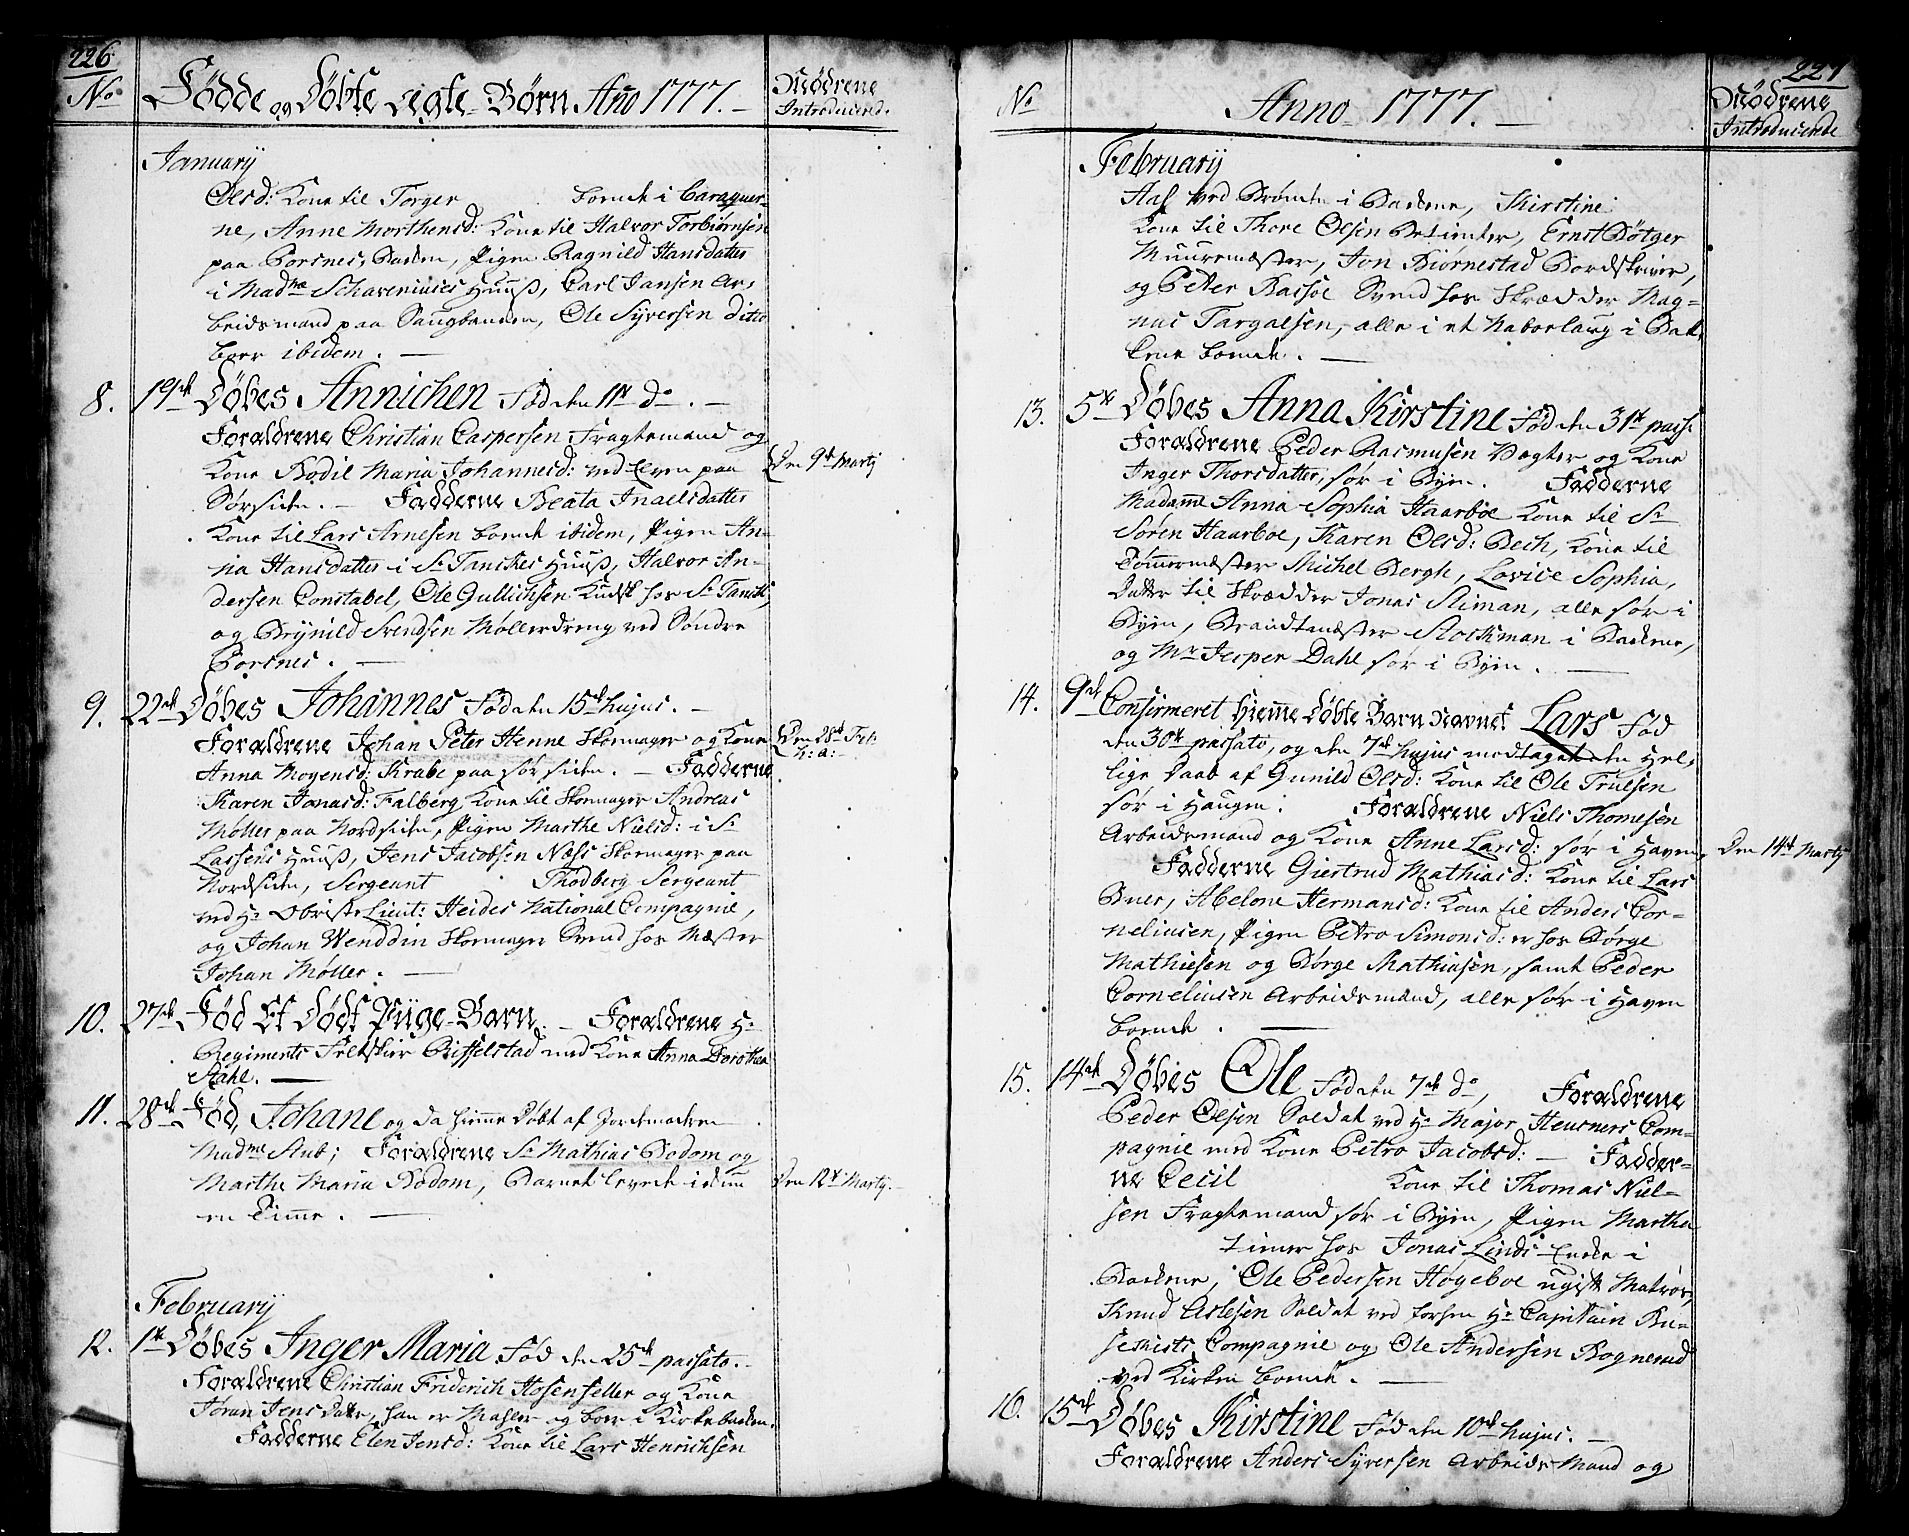 226.
No
Fødde og Døbte Ægte-Børn Año 1777.-
Mødrene
Introducered.
January
Olsd: Kone til Torger boende i Caraquer-
ne, Anne Morthensd: Kone til Halvor Torbiørnsen
paa Porsnes, Backen, Pigen Ragnild Hansdatter
i Madme Schavenius Huuß, Carl Jansen Ar,
beidsmand paa Saugbanden, Ole Syversen ditto
boer ibidem. —
8. 19de Døbes Annichen Fød den 11te do. —
Foraldrene Christian Caspersen Fragtemand og
Kone Bodil Maria Johannesd: ved Elven paa
Den 9de Marty
Sørsiden. — Fadderne Beata Inaelsdatter
Kone til Lars Arnesen boende ibidem, Pigen An-
na Hansdatter i Sr Tanches Huuß, Halvor An-
dersen Constabel, Ole Gullichsen Kudsk hos Sr Tanch,
og Brynild Svendsen Møllerdreng ved Søndre
Porsnes. —
9. 22de Døbes Johannes Fød den 15de hujus. —
Foraldrene Johan Peter Henne Skomager og Kone
Den 28de Feb:
h: a:
Anna Mogensd: Krabe paa Sør siden. — Fadderne
Karen Jonasd: Falberg Kone til Skomager Andreas
Møller paa Nordsiden, Pigen Marthe Nielsd: i Sr
Lassens Huuß, Jens Jacobsen Næss Skomager paa
Nordsiden, Sergeant Thodberg Sergeant
ved Hr Obriste Lieut: Heides National Compagnie,
og Johan Wenddin Skomager Svend hos Mæster
Johan Møller. —
10. 27de Fød Et Dødt Pige-Barn. — Foraldrene Hr
Regiments Feltskier Riffelstad med Kone Anna Dorothea
Stahl. —
11. 28de Fød, Johane og da hieme Døbt af Jordemoderen
Madme Stub; Foraldrene Sr Mathias Bodom og
Marthe Maria Bodom, Barnet levede idun
Den 12te Marty. —
en Time. —
February
12. 1te Døbes Inger Maria Fød den 25de passato. -
Foraldrene Christian Friderich Hosenfeller og Kone
Joran Jens Datter, han er Mahler og boer i Kirkebacken.
Fadderne Elen Jensd: Kone til Lars Henrichsen
227
No
Anno 1777. —
Mødrene
Introducerede
February
Aas ved Brønden i Backene, Kirstine
Kone til Thore Olsen Betienter, Ernst Bøtger
Muuremæster, Jon Biørnestad Bordskriver,
og Peter Bassøe Svend hos Skrædder Mag-
nus Targalsen, alle i et Naboelaug i Bak,
kene boende. —
13. 5te Døbes Anna Kirstine Fød den 31te pass:
Foraldrene Peder Rasmusen Vægter og Kone
Inger Thorsdatter, Sør i Byen. Fadderne
Madame Anna Sophia Haarboe Kone til Sr
Søren Haarboe, Karen Olsd: Bech, Kone til
Tømermæster Michel Bergh, Lovice Sophia,
Datter til Skrædder Jonas Sliman, alle Sør i
Byen, Brandtmæster Stockman i Backene,
og Mr Jesper Dahl Sør i Byen. —
14. 9de Confirmeret Hieme Døbte Barn Navnet Lars Fød
den 30te passato, og den 7de hujus medtaget den Hel,
lige Daab af Gunild Olsd: Kone til Ole Truesen
Sør i Haugen. Foraldrene Niels Thomesen
Arbeidsmand og Kone Anne Larsd: Sør i Haven,
Den 14de Marty
Fadderne Giertrud Mathiasd: Kone til Lars
Buer, Abelone Hermansd: Kone til Anders Cor-
neliusen, Pigen Petro Simonsd: er hos Børge
Mathiesen og Børge Mathiusen, samt Peder
Corneliusen Arbeidsmænd, alle Sør i Haven
boende. —
15. 14de Døbes Ole Fød den 7de do, Foraldrene
Peder Olsen Soldat ved Hr Major Heusners Com-
pagnie med Kone Petro Jacobsd: — Fadder-
ne Cecil Kone til Thomas Niel-
sen Fragtemand Sør i Byen, Pigen Marthe
tiener hos Jonas Linds Enke i
Backene, Ole Pedersen Høgeboe ugift Matros,
Knud Aslesen Soldat ved forhen Hr Capitain Bu-
sethists Compagnie og Ole Andersen Rognerud
ved Kirken boende. —
16. 15de Døbes Kirstine Fød den 10de hujus. —
Foraldrene Anders Syversen Arbeids Mand og